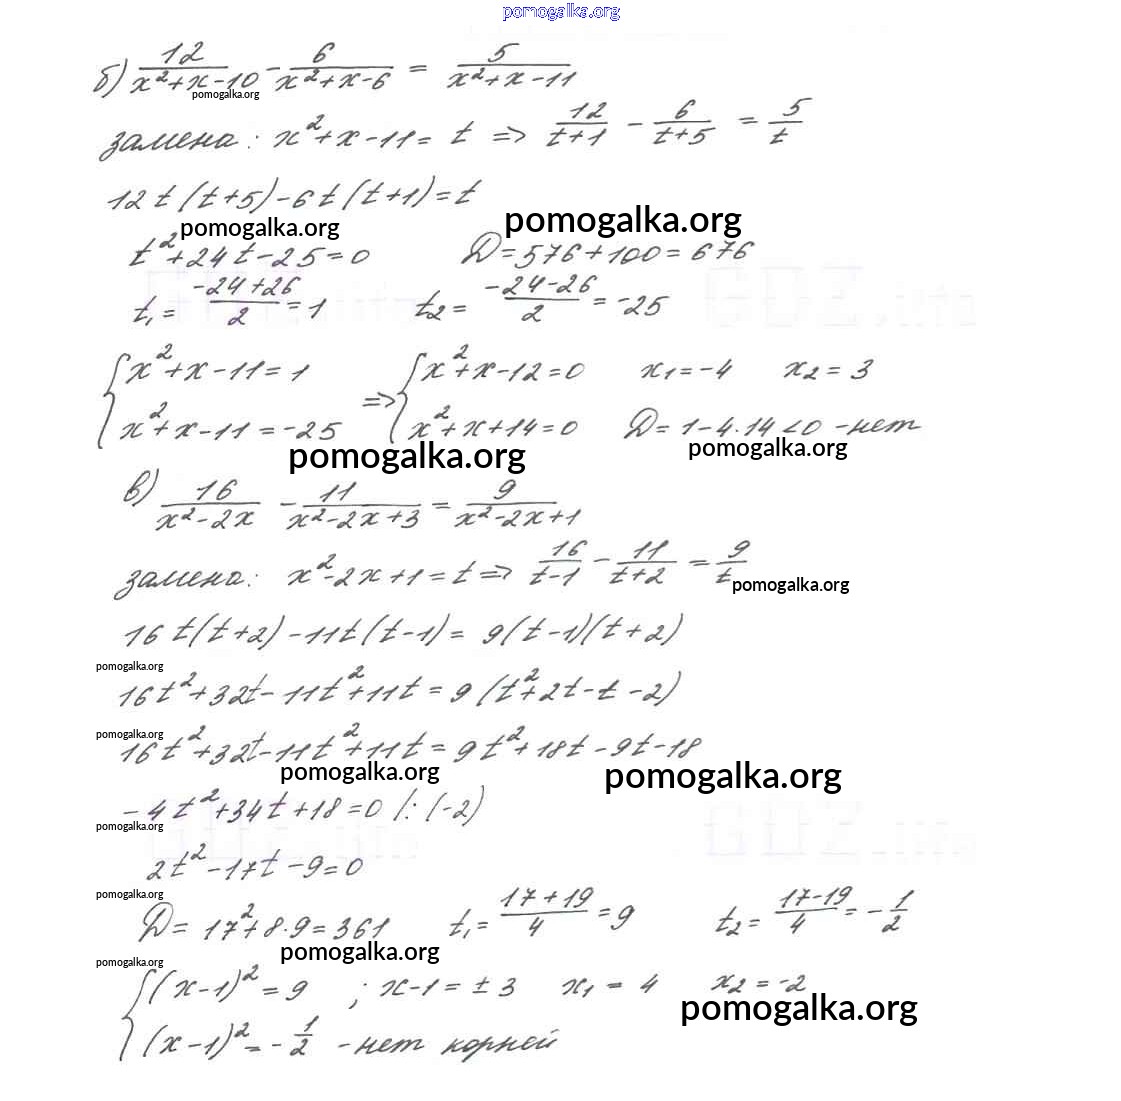 pomogalka.org
б) 12/(x²+x-10) - 6/(x²+x-6) = 5/(x²+x-11)
pomogalka.org
замена: x²+x-11 = t => 12/(t+1) - 6/(t+5) = 5/t
12t(t+5)-6t(t+1)=t
pomogalka.org pomogalka.org
t²+24t-25=0 D=576+100=676
t₁= (-24+26)/2 =1 t₂= (-24-26)/2 = -25
{ x²+x-11=1 => { x²+x-12=0 x₁=-4 x₂=3
x²+x-11=-25 x²+x+14=0 D=1-4·14<0 -нет
pomogalka.org pomogalka.org
в) 16/(x²-2x) - 11/(x²-2x+3) = 9/(x²-2x+1)
замена: x²-2x+1=t => 16/(t-1) - 11/(t+2) = 9/t
pomogalka.org
16t(t+2)-11t(t-1)= 9(t-1)(t+2)
pomogalka.org
16t²+32t-11t²+11t=9(t²+2t-t-2)
pomogalka.org
16t²+32t-11t²+11t=9t²+18t-9t-18
pomogalka.org pomogalka.org
-4t²+34t+18=0 /:(-2)
pomogalka.org
2t²-17t-9=0
pomogalka.org
D= 17²+8·9=361 t₁= (17+19)/4 =9 t₂= (17-19)/4 = -1/2
pomogalka.org
pomogalka.org
{ (x-1)²=9 ; x-1=±3 x₁=4 x₂=-2
pomogalka.org
(x-1)²=-1/2 -нет корней